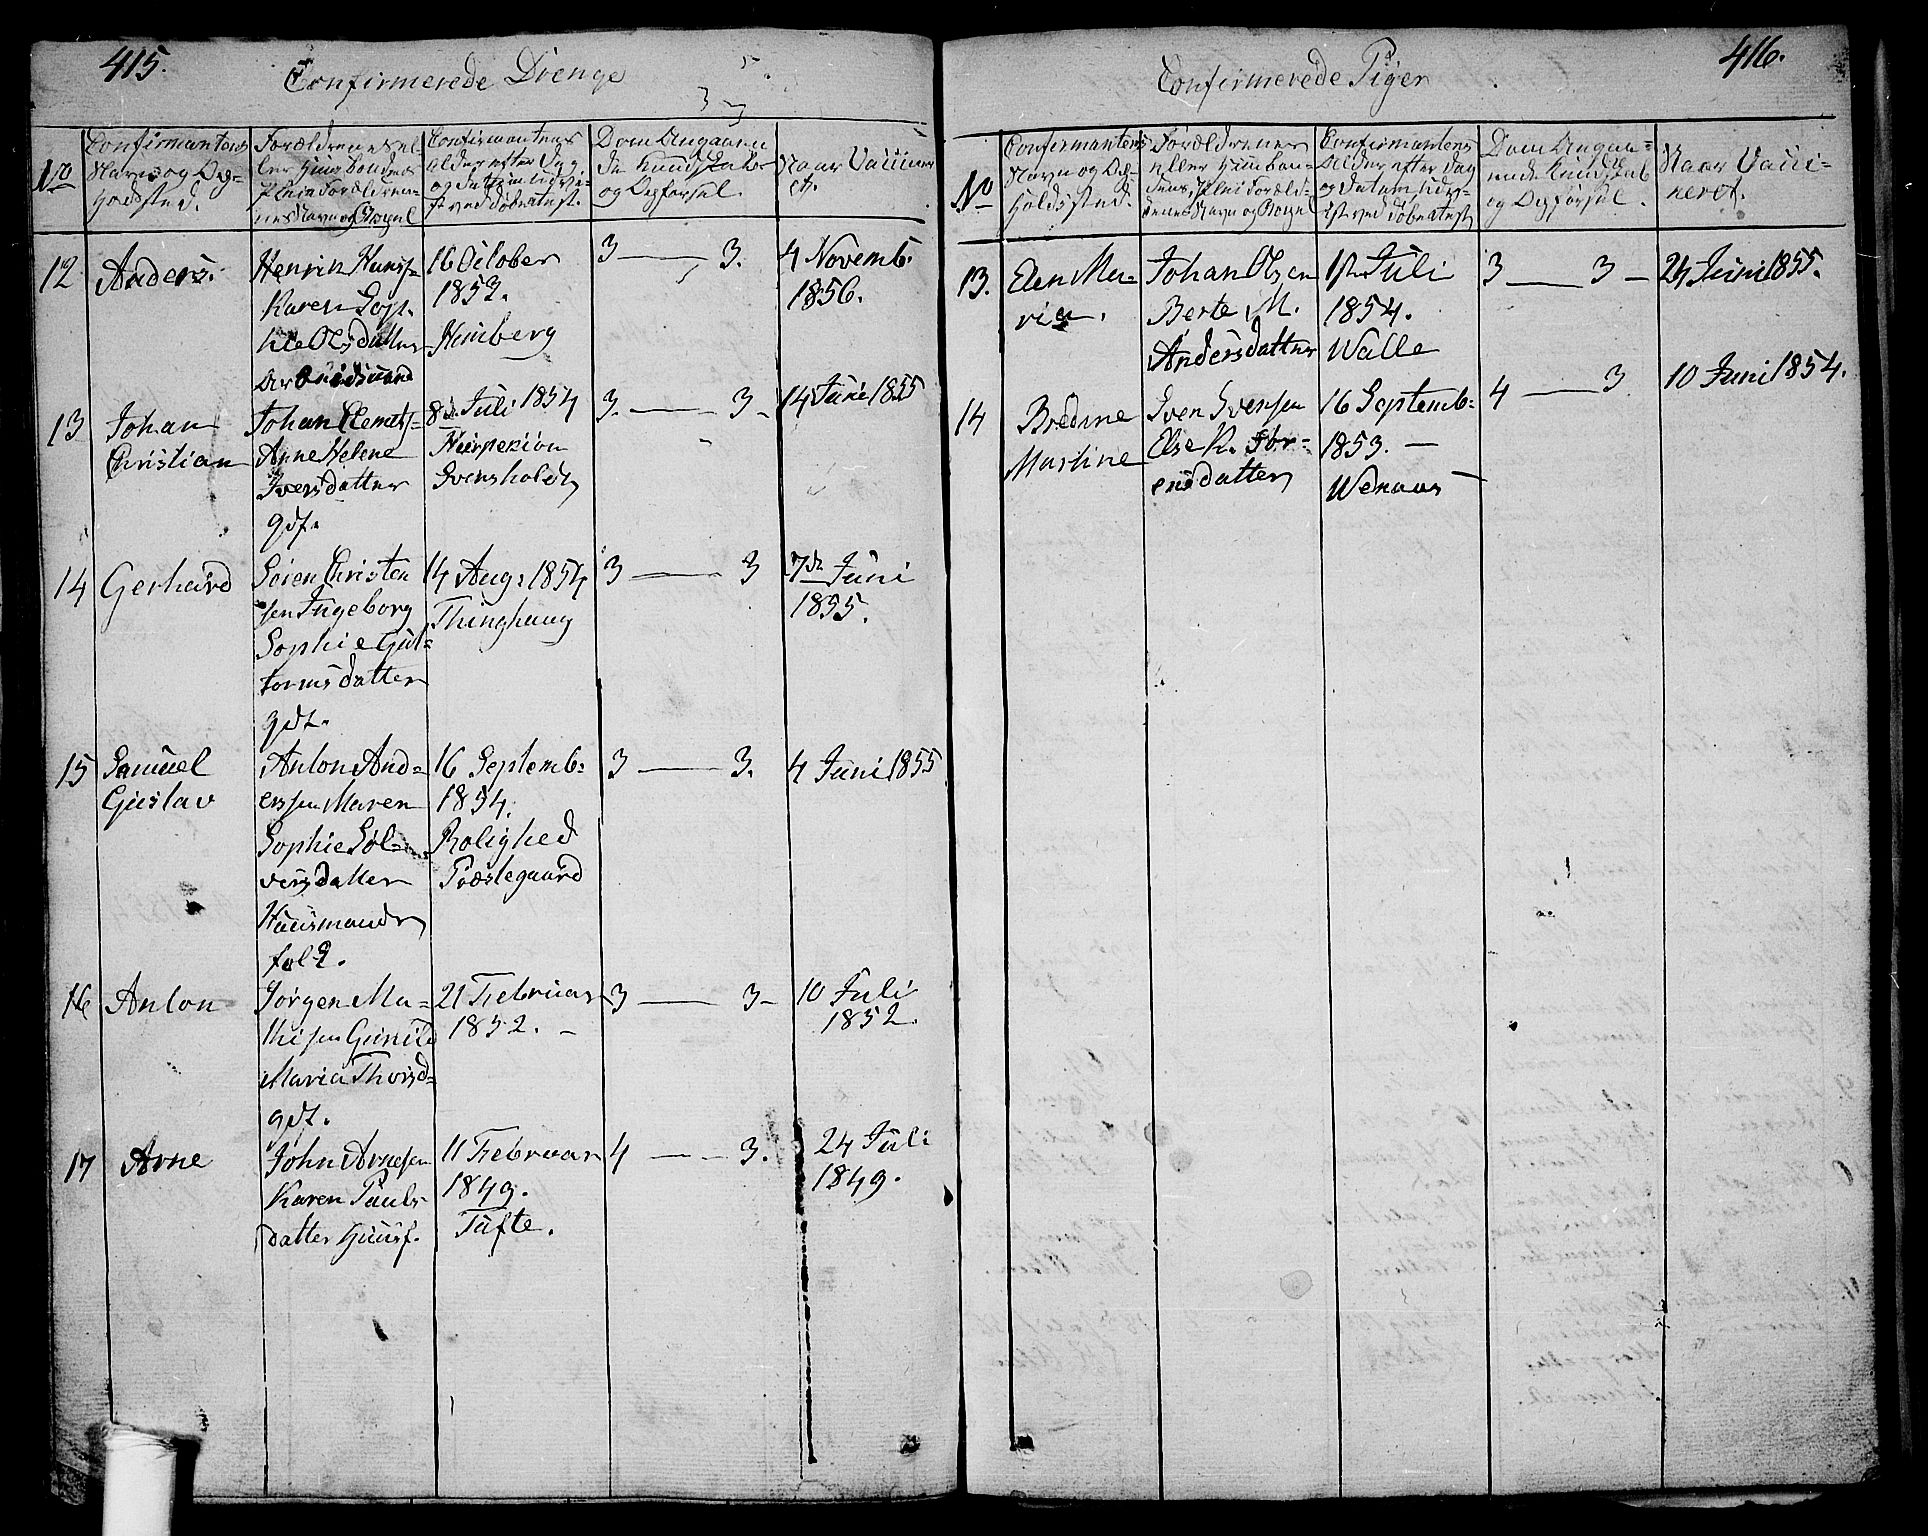 415.
Confirmerede Drenge
No
Confirmantens
Navn og Op-
holdssted.
Forældrenes el-
ler Huusbondes
Pleieforældre-
nes Navn og Borgel
Confirmantens
Alder efter Dag
og Datum udvi-
st ved døbeatest.
Dom Angaaen
de Kundskab
og Opførsel.
Naar Vacciner
et.
12
Anders.
Henrik Hans-
Karen Sop-
hie Olsdatter
16 October
1853.
Heiberg
3 — 3.
4 Novemb.
1856.
13
Johan
Christian
Johan Clemets-
Anne Helene
Iversdatter
gdf.
8de Juli 1854
Svensholdt
3. — 3-
14 Juni 1855
14
Gerhard
Søren Christen
sen Ingeborg
Sophie Gul-
tormsdatter
gdf.
14 Aug: 1854
Thinghaug
3 — 3
7de Juni
1855.
15
Samuel
Gustav
Anton And-
erssen Maren
Sophie Søl-
versdatter
Huusmands
folk.
16 Septemb-
1854.
Rolighed
Præstegaard
3 — 3.
4 Juni 1855
16
Anton
Jørgen Ma-
thisen Gunild
Maria Thorsd-
gdf.
21 Februar
1852. -
3 — 3-
10 Juli
1852.
17
Arne
John Arnesen
Karen Pauls-
datter Huusf.
11 Februar
1849.
Tufte.
4 — 3.
24 Juli
1849.
416.
Confirmerede Piger
No
Confirmantens
Navn og Op-
holdssted.
Forældrenes
eller Huusbon-
dens, Pleieforæld-
renes Navn og Borgel
Confirmantens
Alder efter Dag
og Datum udvi-
ist ved døbeatest
Dom Angaa-
ende Kundskab
og Opførsel.
Naar Vacci-
neret.
13.
Elen Ma-
ria.
Johan Olsen
Berte M.
Andersdatter
1ste Juli
1854.
Walle
3 — 3 -
24 Juni 1855.
14
Bredine
Martine
Sven Svensen
Else K. Sør-
ensdatter
16 Septemb-
1853. —
Wenaas
4 — 3.
10 Juni 1854.